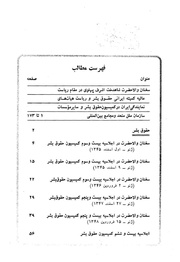 فهرست مطالب
عنوان
صفحه
سخنان والاحضرت شاهدخت اشرف پهلوی در مقام ریاست
عالیه کمیته ایرانی حقوق بشر و ریاست هیأت‌های
نمایندگی ایران در کمیسیون حقوق بشر و سایر مؤسسات
سازمان ملل متحد و مجامع بین‌المللی
۱ تا ۱۷۳
حقوق بشر
۲
سخنان والاحضرت در اجلاسیه بیست و سوم کمیسیون حقوق بشر
۴
سخنان والاحضرت در اجلاسیه بیست و سوم کمیسیون حقوق بشر
۱۵
سخنان والاحضرت در اجلاسیه بیست و پنجم کمیسیون حقوق بشر
سخنان والاحضرت در اجلاسیه بیست و پنجم کمیسیون حقوق بشر
اجلاسیه بیست و ششم کمیسیون حقوق بشر